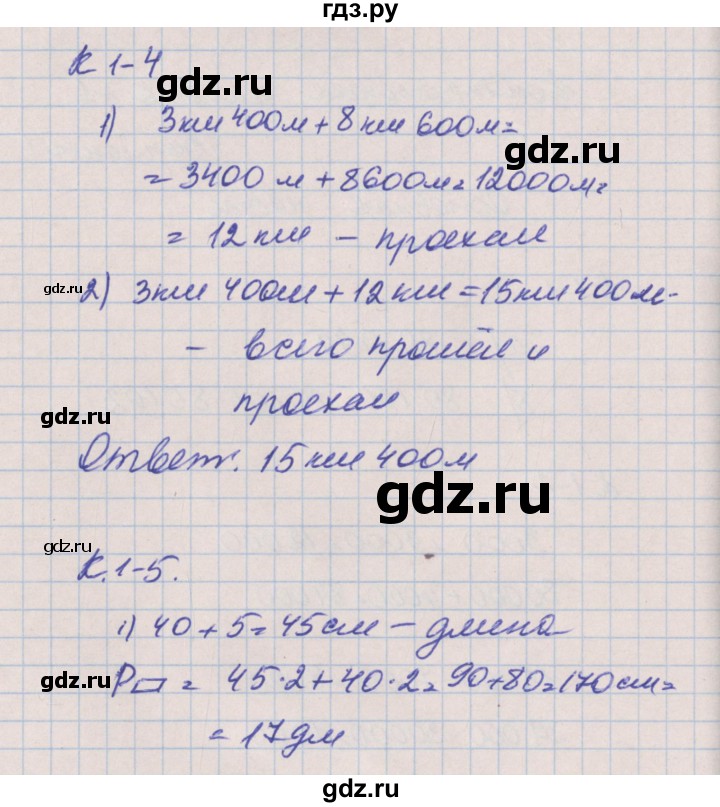 гдз.ру
К 1-4
gdz.ru
1) 3км 400м + 8км 600м =
gdz.ru
= 3400 м + 8600м = 12000м =
= 12 км – проехал
gdz.ru
2) 3км 400м + 12 км = 15 км 400м -
– всего прошёл и
проехал
gdz.ru
Ответ. 15 км 400м
gdz.ru
gdz.ru
К. 1-5.
1) 40 + 5 = 45 см – длина
gdz.ru
P▱ = 45·2 + 40·2 = 90 + 80 = 170 см =
= 17 дм
gdz.ru
gdz.ru